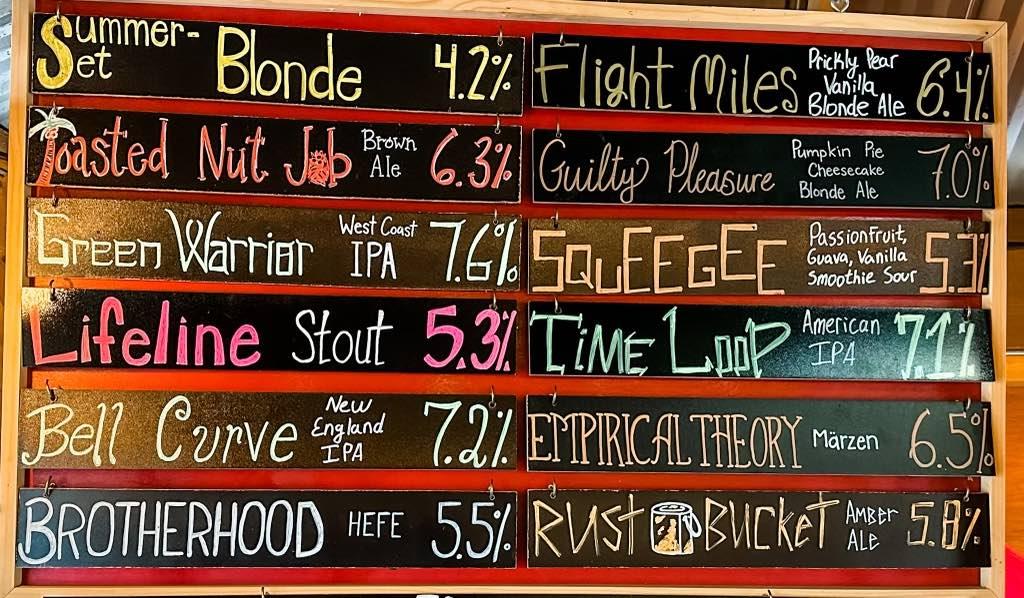 Summer-
Set Blonde 4.2%
Toasted Nut Job Brown
Ale 6.3%
Green Warrior West Coast
IPA 7.6%
Lifeline Stout 5.3%
Bell Curve New
England
IPA 7.2%
BROTHERHOOD HEFE 5.5%
Flight Miles Prickly Pear
Vanilla
Blonde Ale 6.4%
Guilty Pleasure Pumpkin Pie
Cheesecake
Blonde Ale 7.0%
SQUEEGEE PassionFruit,
Guava, Vanilla
Smoothie Sour 5.3%
TIME LOOP American
IPA 7.1%
EMPIRICAL THEORY Märzen 6.5%
RUST BUCKET AMBER
ALE 5.8%